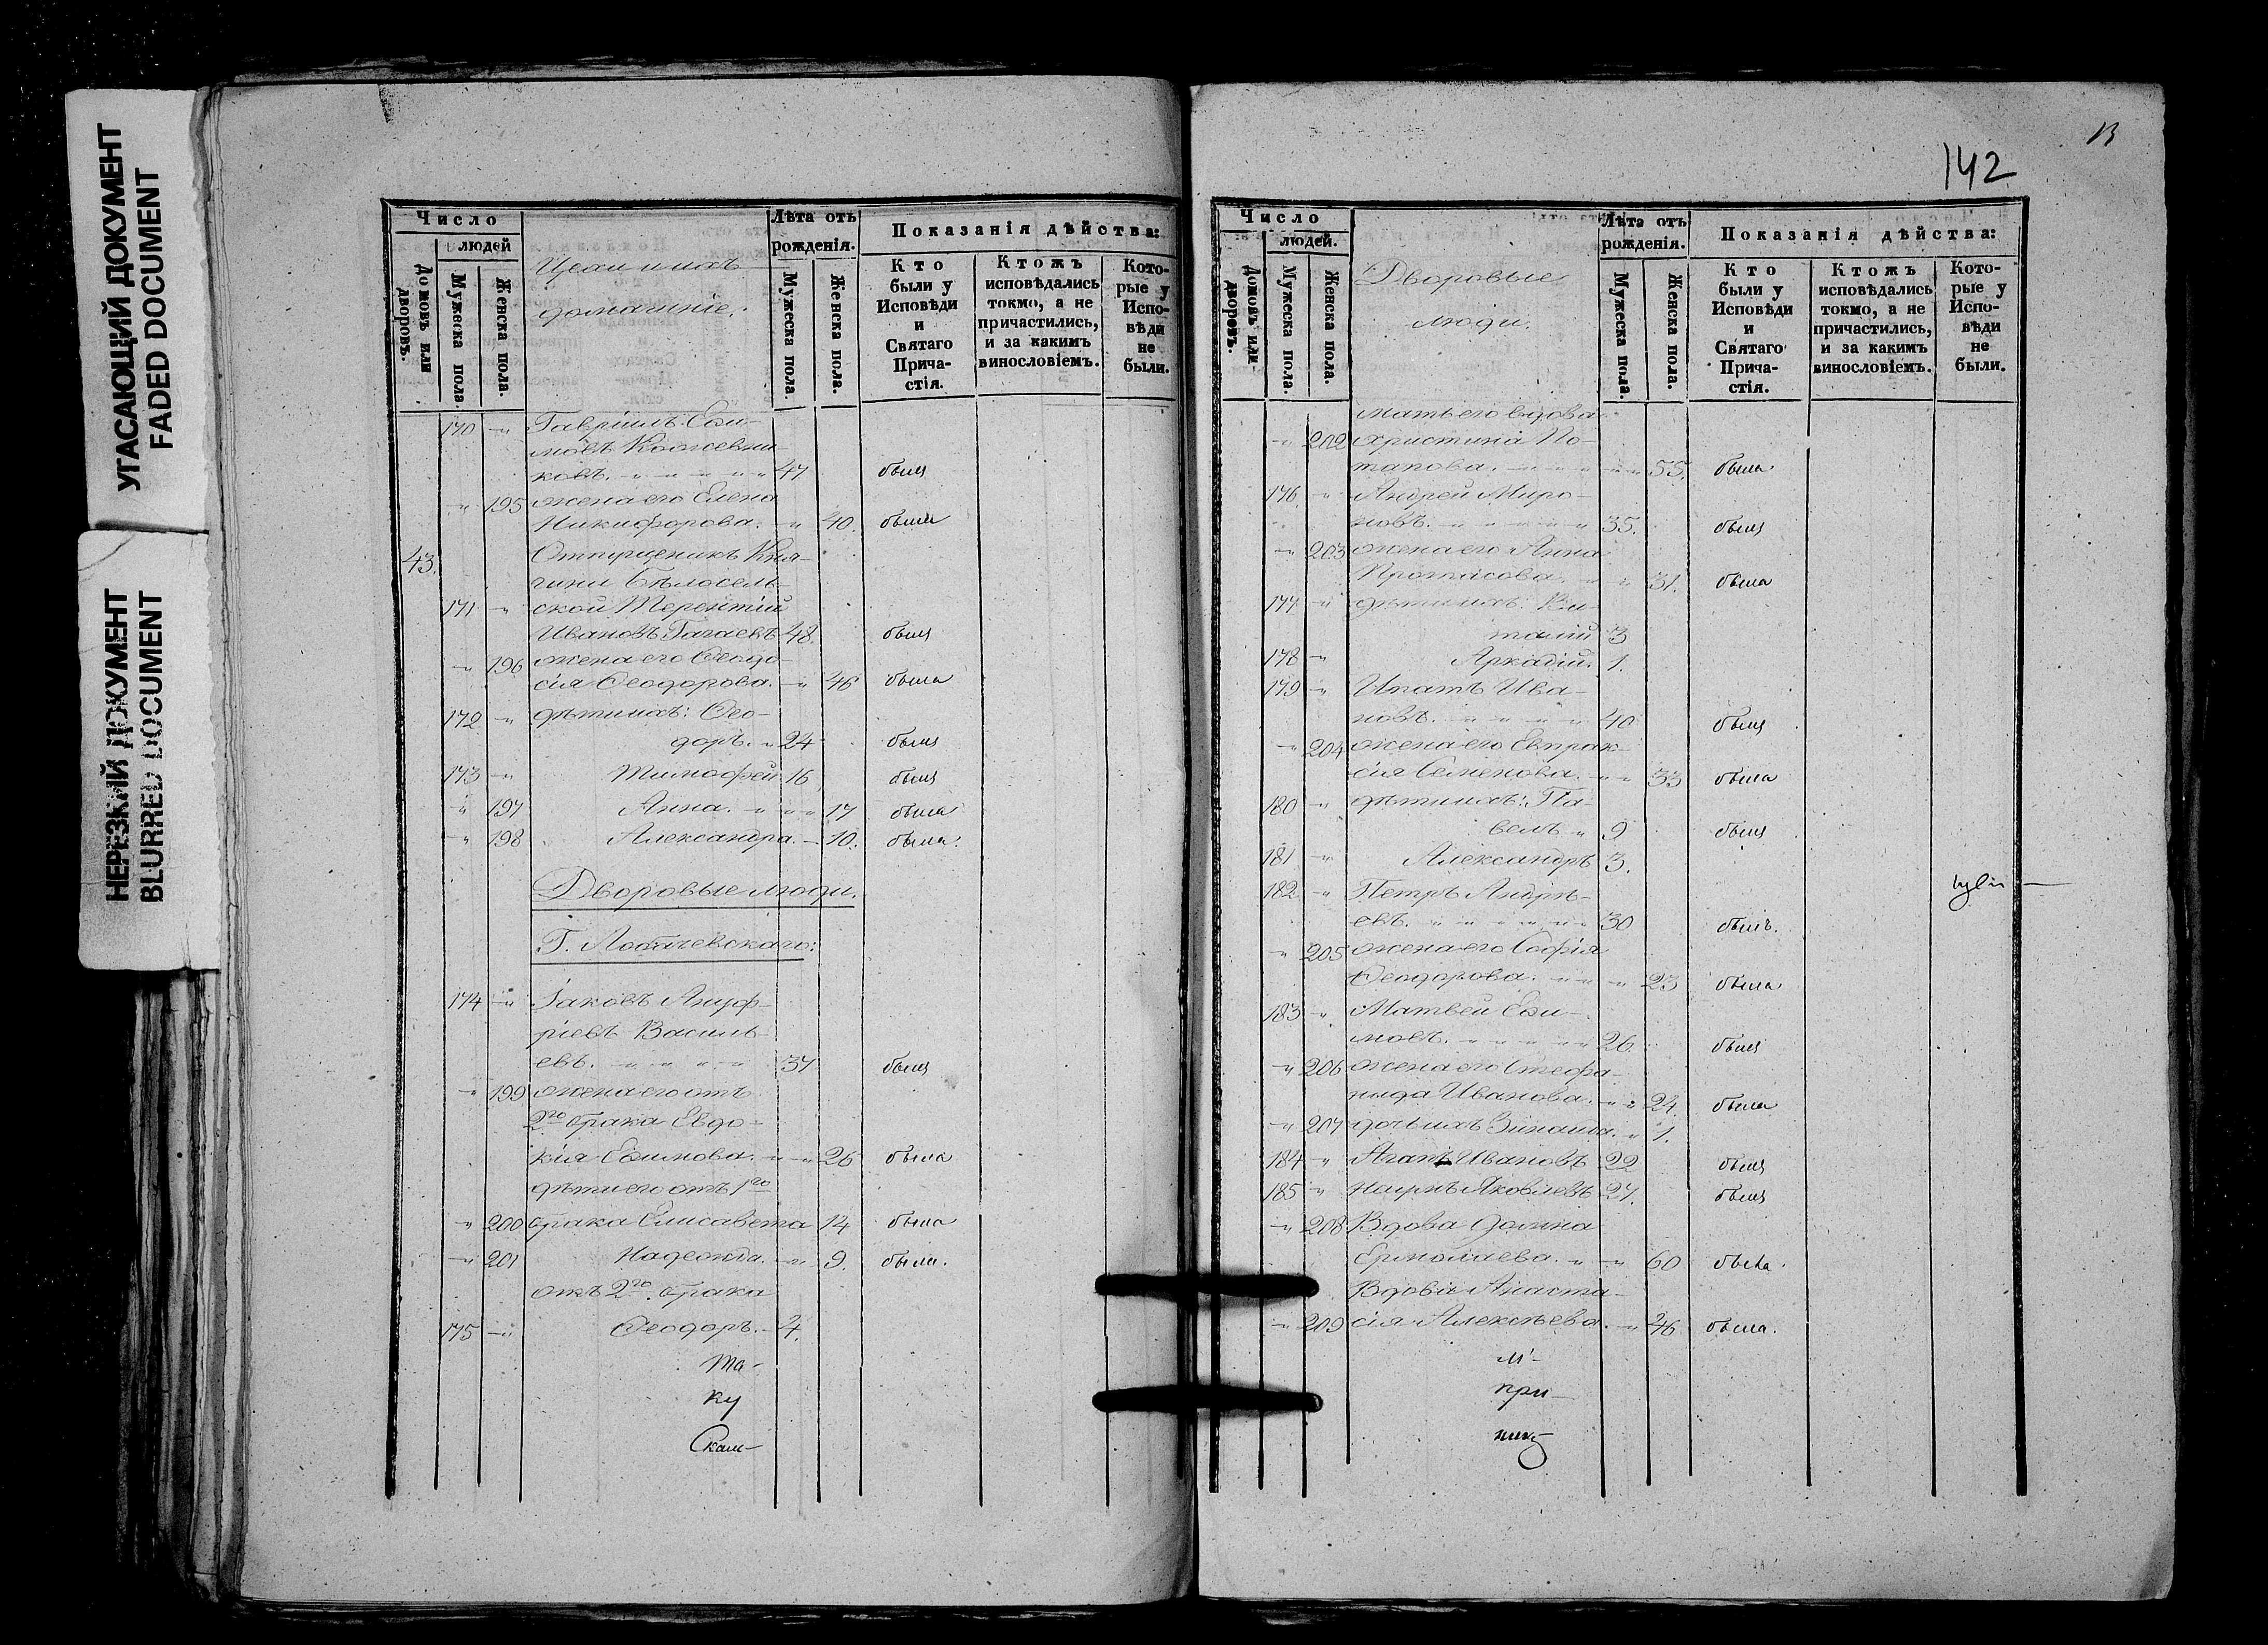 УГАСАЮЩИЙ ДОКУМЕНТ
FADED DOCUMENT
НЕРЕЗКИЙ ДОКУМЕНТ
BLURRED DOCUMENT
Число
людей
Домовъ или дворовъ.
Мужеска пола.
Женска пола.
домашніе.
Лѣта отъ рожденія.
Мужеска пола
Женска пола.
Показанія дѣйства:
Кто были у Исповѣди и Святаго Прича-стія.
Ктожъ исповѣдались токмо, а не причастились, и за какимъ винословіемъ.
Кото-рые у Испо-вѣди не были.
170 " Гавріилъ Ефи-
мовъ Кожевни-
ковъ. " " " " " 47 былъ
" 195 жена его Елена
Никифорова. " 40. была
43. Отпущеникъ Кня-
гини Бѣлосель-
171 " ской Терентій
Ивановъ 48. былъ
" 196 жена его Ѳеодо-
сія Ѳеодорова. " 46 была
172 " дѣти ихъ: Ѳео-
доръ. " 24 былъ
173 " Тимофей 16 былъ
" 197 Анна. " " " 17 была
" 198 Александра. " 10. была.
Дворовые люди.
174 " Іаковъ Ануф-
ріевъ Василь-
евъ. " " " " 37 былъ
" 199 жена его отъ
2го брака Евдо-
кія Ефимова. " " 26 была
дѣти его отъ 1го
" 200 брака Елисавета 14 была
" 201 Надежда. " 9. была.
отъ 2го брака
175 " Ѳеодоръ. 4.
Та-
ку
Скаш-
13
142
Число
людей.
Домовъ или дворовъ.
Мужеска пола.
Женска пола.
Дворовые
люди.
Лѣта отъ рожденія.
Мужеска пола.
Женска пола.
Показанія дѣйства:
Кто были у Исповѣди и Святаго Прича-стія.
Ктожъ исповѣдались токмо, а не причастились, и за какимъ винословіемъ.
Кото-рые у Испо-вѣди не были.
мать его вдова
" 202 Христина По-
тапова. " " " " " 55. была
176 " Андрей Миро-
новъ. " " " " " 35. былъ
" 203 жена его Анна
Протасова. " " 31. была
177 " дѣти ихъ: Ви-
талій 3
178 " Аркадій. 1.
179 " Ипатъ Ива-
новъ. " " " " 40 былъ
" 204 жена его Евпрак-
сія Семенова. " " 33 была
180 " дѣти ихъ: Па-
велъ " 9 былъ
181 " Александръ 3.
182 " Петръ Андре-
евъ. " " " " " " 30 былъ.
" 205 жена его Софія
Ѳеодорова. " " " 23 была
183 " Матвей Ефи-
мовъ. " " " " " 26. былъ
" 206 жена его Стефа-
нида Иванова. " " 24. была
" 207 дочь ихъ Зинаида. " 1.
184 " Агапъ Ивановъ 22 былъ
185 " Наумъ Яковлевъ 27. былъ
" 208 Вдова Домна
Ермолаева. " " 60 была.
Вдова Анаста-
" 209 сія Алексѣева. " 46 была.
при-